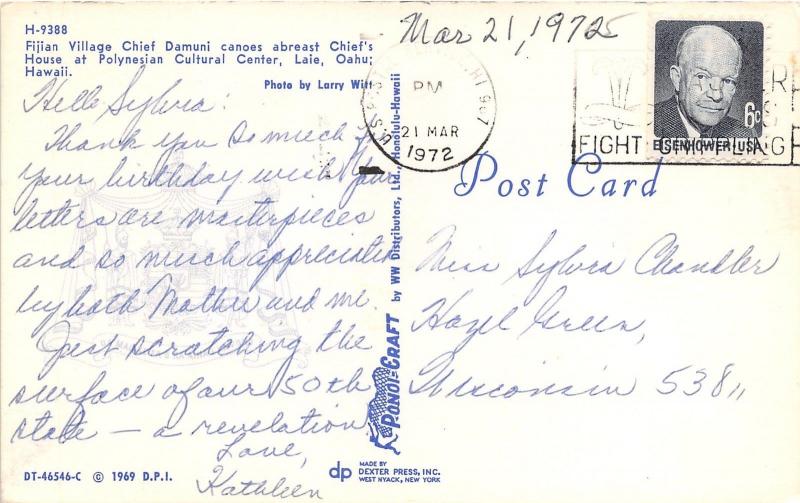 H-9388
Fijian Village Chief Damuni canoes abreast Chief's
House at Polynesian Cultural Center, Laie, Oahu;
Hawaii.
Photo by Larry Witt
Hello Sylvia:
Thank you so much for
your birthday wish. Your
letters are masterpieces
and so much appreciated
by both Mother and me.
Just scratching the
surface of our 50th
state — a revelation.
Love,
Kathleen
DT-46546-C © 1969 D.P.I.
dp
MADE BY
DEXTER PRESS, INC.
WEST NYACK, NEW YORK
PONOI-CRAFT by WW Distributors, Ltd., Honolulu-Hawaii
Mar 21, 1972
PM
21 MAR
1972
FIGHT
6c
EISENHOWER·USA
Post Card
Miss Sylvia Chandler
Hazel Green,
Wisconsin 53811